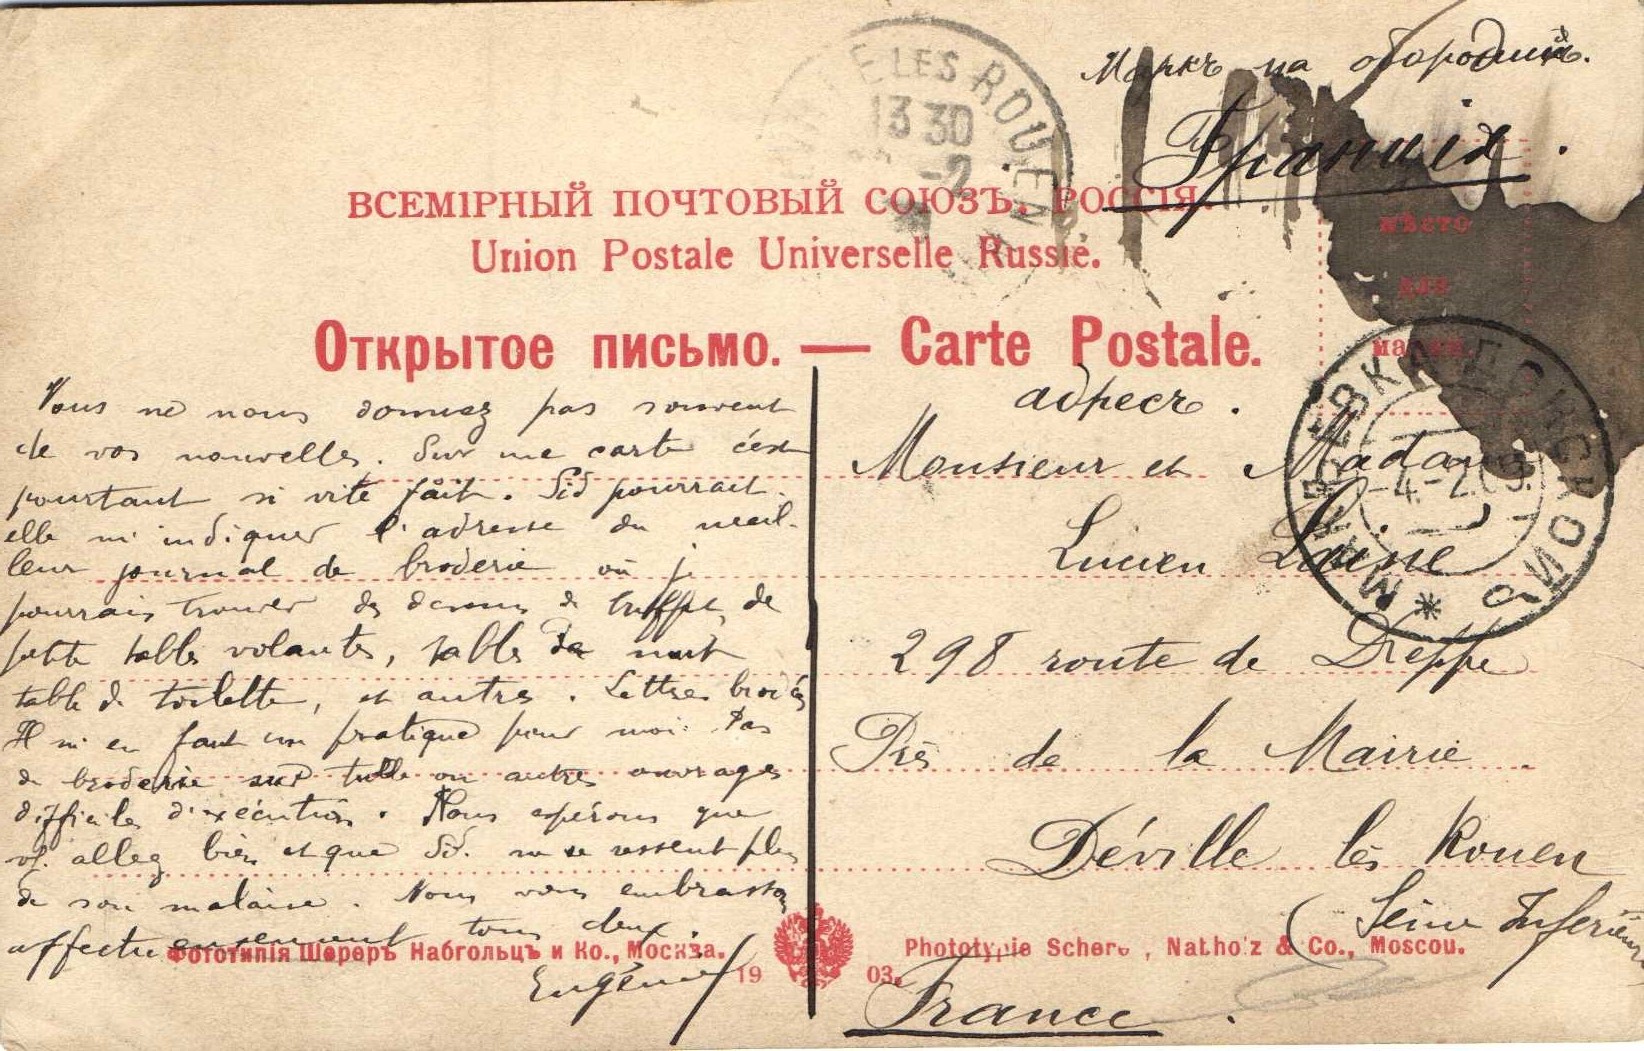 Маркъ на обородкѣ.
Франція.
E LES ROUEN
13 30
-2
ВСЕМІРНЫЙ ПОЧТОВЫЙ СОЮЗЪ. РОССІЯ.
Union Postale Universelle Russie.
мѣсто
для
марки.
Открытое письмо. — Carte Postale.
МАКѢЕВКА ДОНСКОЙ
4-2
Vous ne nous donnez pas souvent
de vos nouvelles. Sur une carte c'est
pourtant si vite fait. Sid pourrait
elle m'indiquer l'adresse du meil-
leur journal de broderie où je
pourrais trouver des dessus de buffet, de
petite tables volantes, tables de nuit
table de toilette, et autres. Lettres brodées
Il m'en faut un pratique pour moi. Pas
de broderie sur tulle ou autres ouvrages
difficiles d'exécution. Nous espérons que
vs. allez bien et que Sid. ne se ressent plus
de son malaise. Nous vous embrassons
affectueusement tous deux.
Eugénie
адресъ.
Monsieur et Madame
Lucien Laine
298 route de Dieppe
Près de la Mairie
Déville lès Rouen
(Seine Inférieure
France.
Фототипія Шереръ Набгольцъ и Ко., Москва.
1903.
Phototypie Scherer, Nabholz & Co., Moscou.